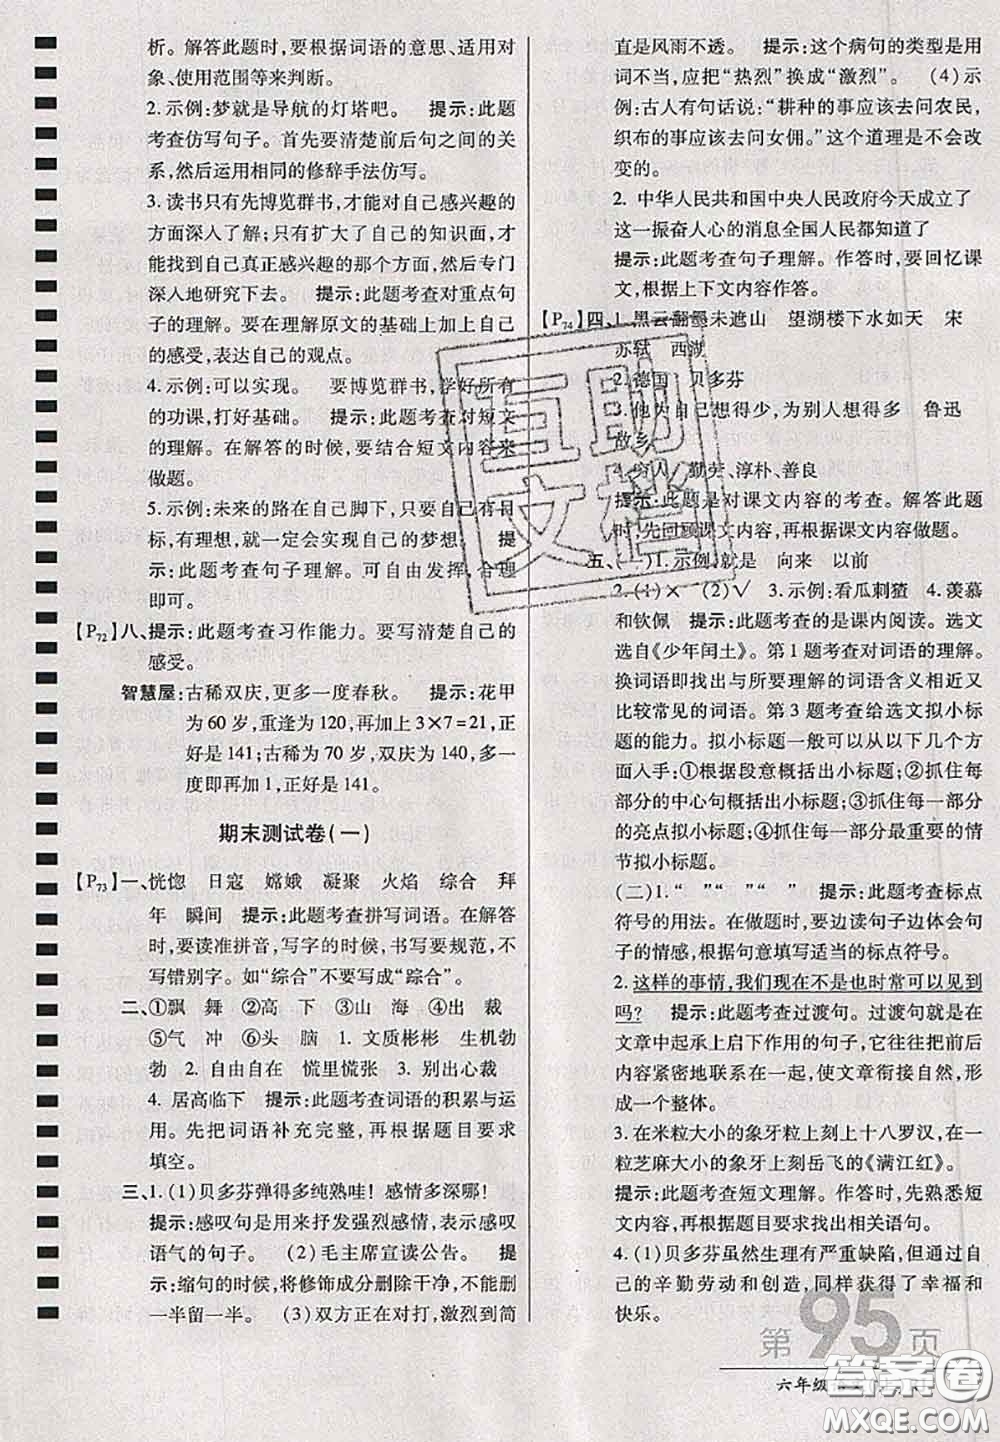 析。解答此题时,要根据词语的意思、适用对
象、使用范围等来判断。
2. 示例:梦就是导航的灯塔吧。 提示:此题
考查仿写句子。首先要清楚前后句之间的关
系,然后运用相同的修辞手法仿写。
3. 读书只有先博览群书,才能对自己感兴趣的
方面深入了解;只有扩大了自己的知识面,才
能找到自己真正感兴趣的那个方面,然后专门
深入地研究下去。 提示:此题考查对重点句
子的理解。要在理解原文的基础上加上自己
的感受,表达自己的观点。
4. 示例:可以实现。 要博览群书,学好所有
的功课,打好基础。 提示:此题考查对短文
的理解。在解答的时候,要结合短文内容来
做题。
5. 示例:未来的路在自己脚下,只要自己有目
标,有理想,就一定会实现自己的梦想。 提
示:此题考查句子理解。可自由发挥,合理
即可。
【P72】八、提示:此题考查习作能力。要写清楚自己的
感受。
智慧屋:古稀双庆,更多一度春秋。 提示:花甲
为 60 岁,重逢为 120,再加上 3×7=21,正
好是 141;古稀为 70 岁,双庆为 140,多一
度即再加 1,正好是 141。
期末测试卷(一)
【P73】一、恍惚 日寇 嫦娥 凝聚 火焰 综合 拜
年 瞬间 提示:此题考查拼写词语。在解答
时,要读准拼音,写字的时候,书写要规范,不
写错别字。如“综合”不要写成“踪合”。
二、①飘 舞 ②高 下 ③山 海 ④出 裁
⑤气 冲 ⑥头 脑 1. 文质彬彬 生机勃
勃 2. 自由自在 慌里慌张 3. 别出心裁
4. 居高临下 提示:此题考查词语的积累与运
用。先把词语补充完整,再根据题目要求
填空。
三、1. (1)贝多芬弹得多纯熟哇! 感情多深哪!
提示:感叹句是用来抒发强烈感情,表示感叹
语气的句子。 (2)毛主席宣读公告。 提
示:缩句的时候,将修饰成分删除干净,不能删
一半留一半。 (3)双方正在对打,激烈到简
直是风雨不透。 提示:这个病句的类型是用
词不当,应把“热烈”换成“激烈”。 (4)示
例:古人有句话说:“耕种的事应该去问农民,
织布的事应该去问女佣。”这个道理是不会改
变的。
2. 中华人民共和国中央人民政府今天成立了
这一振奋人心的消息全国人民都知道了
提示:此题考查句子理解。作答时,要回忆课
文,根据上下文内容作答。
【P74】四、1. 黑云翻墨未遮山 望湖楼下水如天 宋
苏轼 西湖
2. 德国 贝多芬
3. 他为自己想得少,为别人想得多 鲁迅
故乡
4. 穷人 勤劳、淳朴、善良
提示:此题是对课文内容的考查。解答此题
时,先回顾课文内容,再根据课文内容做题。
五、(一)1. 示例:就是 向来 以前
2. (1)× (2)√ 3. 示例:看瓜刺猹 4. 羡慕
和钦佩 提示:此题考查的是课内阅读。选文
选自《少年闰土》。第 1 题考查对词语的理解。
换词语即找出与所要理解的词语含义相近又
比较常见的词语。第 3 题考查给选文拟小标
题的能力。拟小标题一般可以从以下几个方
面入手:①根据段意概括出小标题;②抓住每
部分的中心句概括出小标题;③抓住每一部分
的亮点拟小标题;④抓住每一部分最重要的情
节拟小标题。
(二)1. “ ”“ ”“ ” 提示:此题考查标点
符号的用法。在做题时,要边读句子边体会句
子的情感,根据句意填写适当的标点符号。
2. 这样的事情,我们现在不是也时常可以见到
吗? 提示:此题考查过渡句。过渡句就是在
文章中起承上启下作用的句子,它往往将前后
内容紧密地联系在一起,使文章衔接自然,
形成一个整体。
3. 在米粒大小的象牙粒上刻上十八罗汉,在一
粒芝麻大小的象牙上刻岳飞的《满江红》。
提示:此题考查短文理解。作答时,先熟悉短
文内容,再根据题目要求找出相关语句。
4. (1)贝多芬虽然生理有严重缺陷,但通过自
己的辛勤劳动和创造,同样获得了幸福和
快乐。
互助
文档
第95页
六年级
答案圈
MXQE.COM